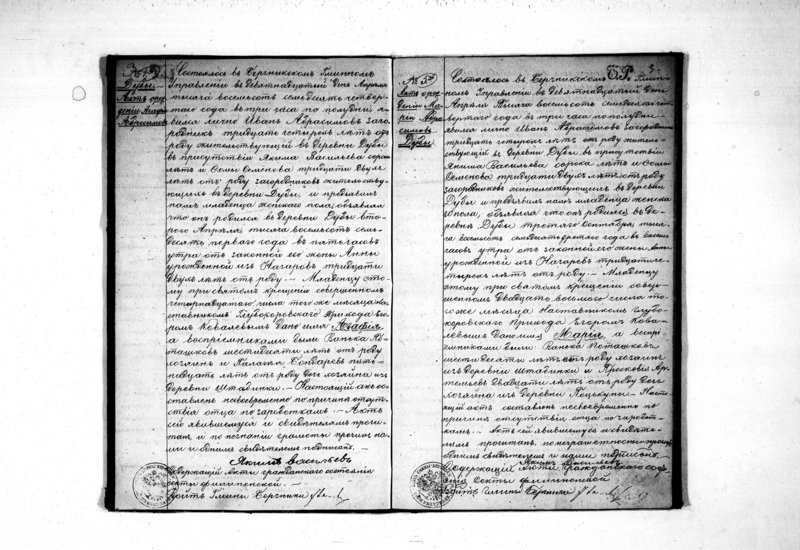 Дубы
Состоялось въ Бергникскомъ Гминномъ
Управленіи въ девятнадцатый день Апрѣля
тысяча восемьсотъ семьдесятъ четвер-
таго года въ три часа по полудни я-
вился лично Иванъ Абрасимовъ заго-
родникъ тридцать четырехъ лѣтъ отъ
роду жительствующій въ деревни Дубы
въ присутствіи Якима Васильева сорока
лѣтъ и Сомы Семенова тридцати двухъ
лѣтъ отъ роду загородниковъ жительству-
ющихъ въ деревни Дубы, и предъявилъ
намъ младенца женскаго пола, объявляя
что онъ родился въ деревни Дубы вто-
рого Апрѣля, тысяча восемьсотъ семь-
десять перваго года въ пять часовъ
утра отъ законной его жоны Анны
урожденной изъ Нагаровъ тридцати
двухъ лѣтъ отъ роду. — Младенцу это-
му при святомъ крещеніи совершонномъ
четырнадцатаго числа того же мѣсяца На-
ставникомъ Глубокоровскаго прихода Его-
ромъ Ковалевымъ дано имя Агафія,
а воспріемниками были Ванька По-
ташковъ шестидесяти лѣтъ отъ роду
хозяинъ и Палагья Бондарева пят-
надцать лѣтъ отъ роду дочь хозяина изъ
деревни Штадинки. — Настоящій актъ со-
ставленъ несвоевременно по причинѣ отсут-
ствія отца по заработкамъ. — Актъ
сей явившемуся и свидѣтелямъ прочи-
танъ, и по незнаніи грамоты прочихъ, на-
ми и однимъ свидѣтелемъ подписанъ. —
Якимъ Васильевъ
Содержащій Акты гражданскаго состоянія
секты филиповской. —
Войтъ Гмины Бергники
№ 5
Дубы
3.
Состоялось въ Бергникскомъ Гмин-
номъ Управленіи въ девятнадцатый день
Апрѣля тысяча восемьсотъ семьдесятъ чет-
вертаго года въ три часа по полудни я-
вился лично Иванъ Абрасимовъ загородникъ
тридцать четырехъ лѣтъ отъ роду житель-
ствующій въ деревни Дубы въ присутствіи
Якима Васильева сорока лѣтъ и Сомы
Семенова тридцати двухъ лѣтъ отъ роду
загородниковъ жительствующихъ въ деревни
Дубы и предъявилъ намъ младенца женска-
го пола, объявляя что онъ родился въ де-
ревни Дубы третяго Сентября, тыся-
ча восемьсотъ семьдесятъ третяго года въ восемь
часовъ утра отъ законной его жоны Анны
урожденной изъ Нагаровъ тридцати че-
тырехъ лѣтъ отъ роду. — Младенцу
этому при святомъ крещеніи совер-
шонномъ двадцать восьмого числа то-
гоже мѣсяца Наставникомъ Глубо-
коровскаго Прихода Егоромъ Кова-
левымъ дано имя Марія, а воспрі-
емниками были Ванька Поташковъ
шестидесяти лѣтъ отъ роду хозяинъ
изъ деревни Штадинки и Просковья Ар-
темьева двадцати лѣтъ отъ роду дочь
хозяина изъ деревни Пецькупы. — Насто-
ящій актъ составленъ несвоевременно по
причинѣ отсутствія отца по заработ-
камъ. — Актъ сей явившемуся и свидѣте-
лямъ прочитанъ, по неграмотности прочихъ
однимъ свидѣтелемъ и нами подписанъ. —
Якимъ Васильевъ
Содержащій Акты гражданскаго сос-
тоянія секты филиповской
Войтъ Гмины Бергники